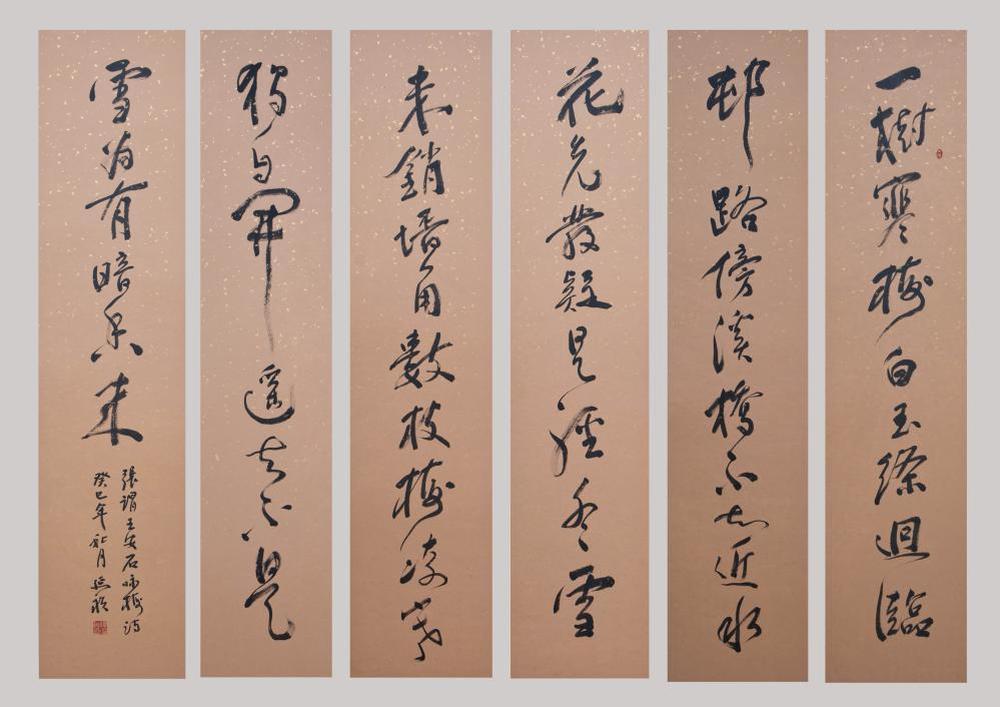 一樹寒梅白玉條迥臨
邨路傍溪橋不知近水
花先發疑是經冬雪
未銷墙角數枝梅凌寒
獨自開遥知不是
雪為有暗香来
張謂王安石咏梅诗
癸巳年秋月